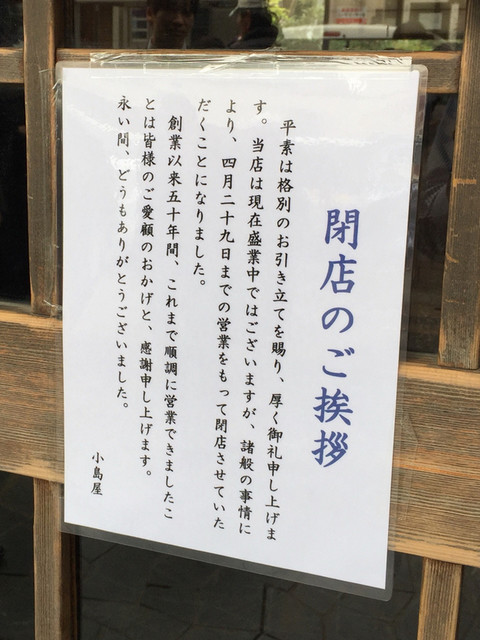 閉店のご挨拶
平素は格別のお引き立てを賜り、厚く御礼申し上げま
す。当店は現在盛業中ではございますが、諸般の事情に
より、四月二十九日までの営業をもって閉店させていた
だくことになりました。
創業以来五十年間、これまで順調に営業できましたこ
とは皆様のご愛顧のおかげと、感謝申し上げます。
永い間、どうもありがとうございました。
小島屋